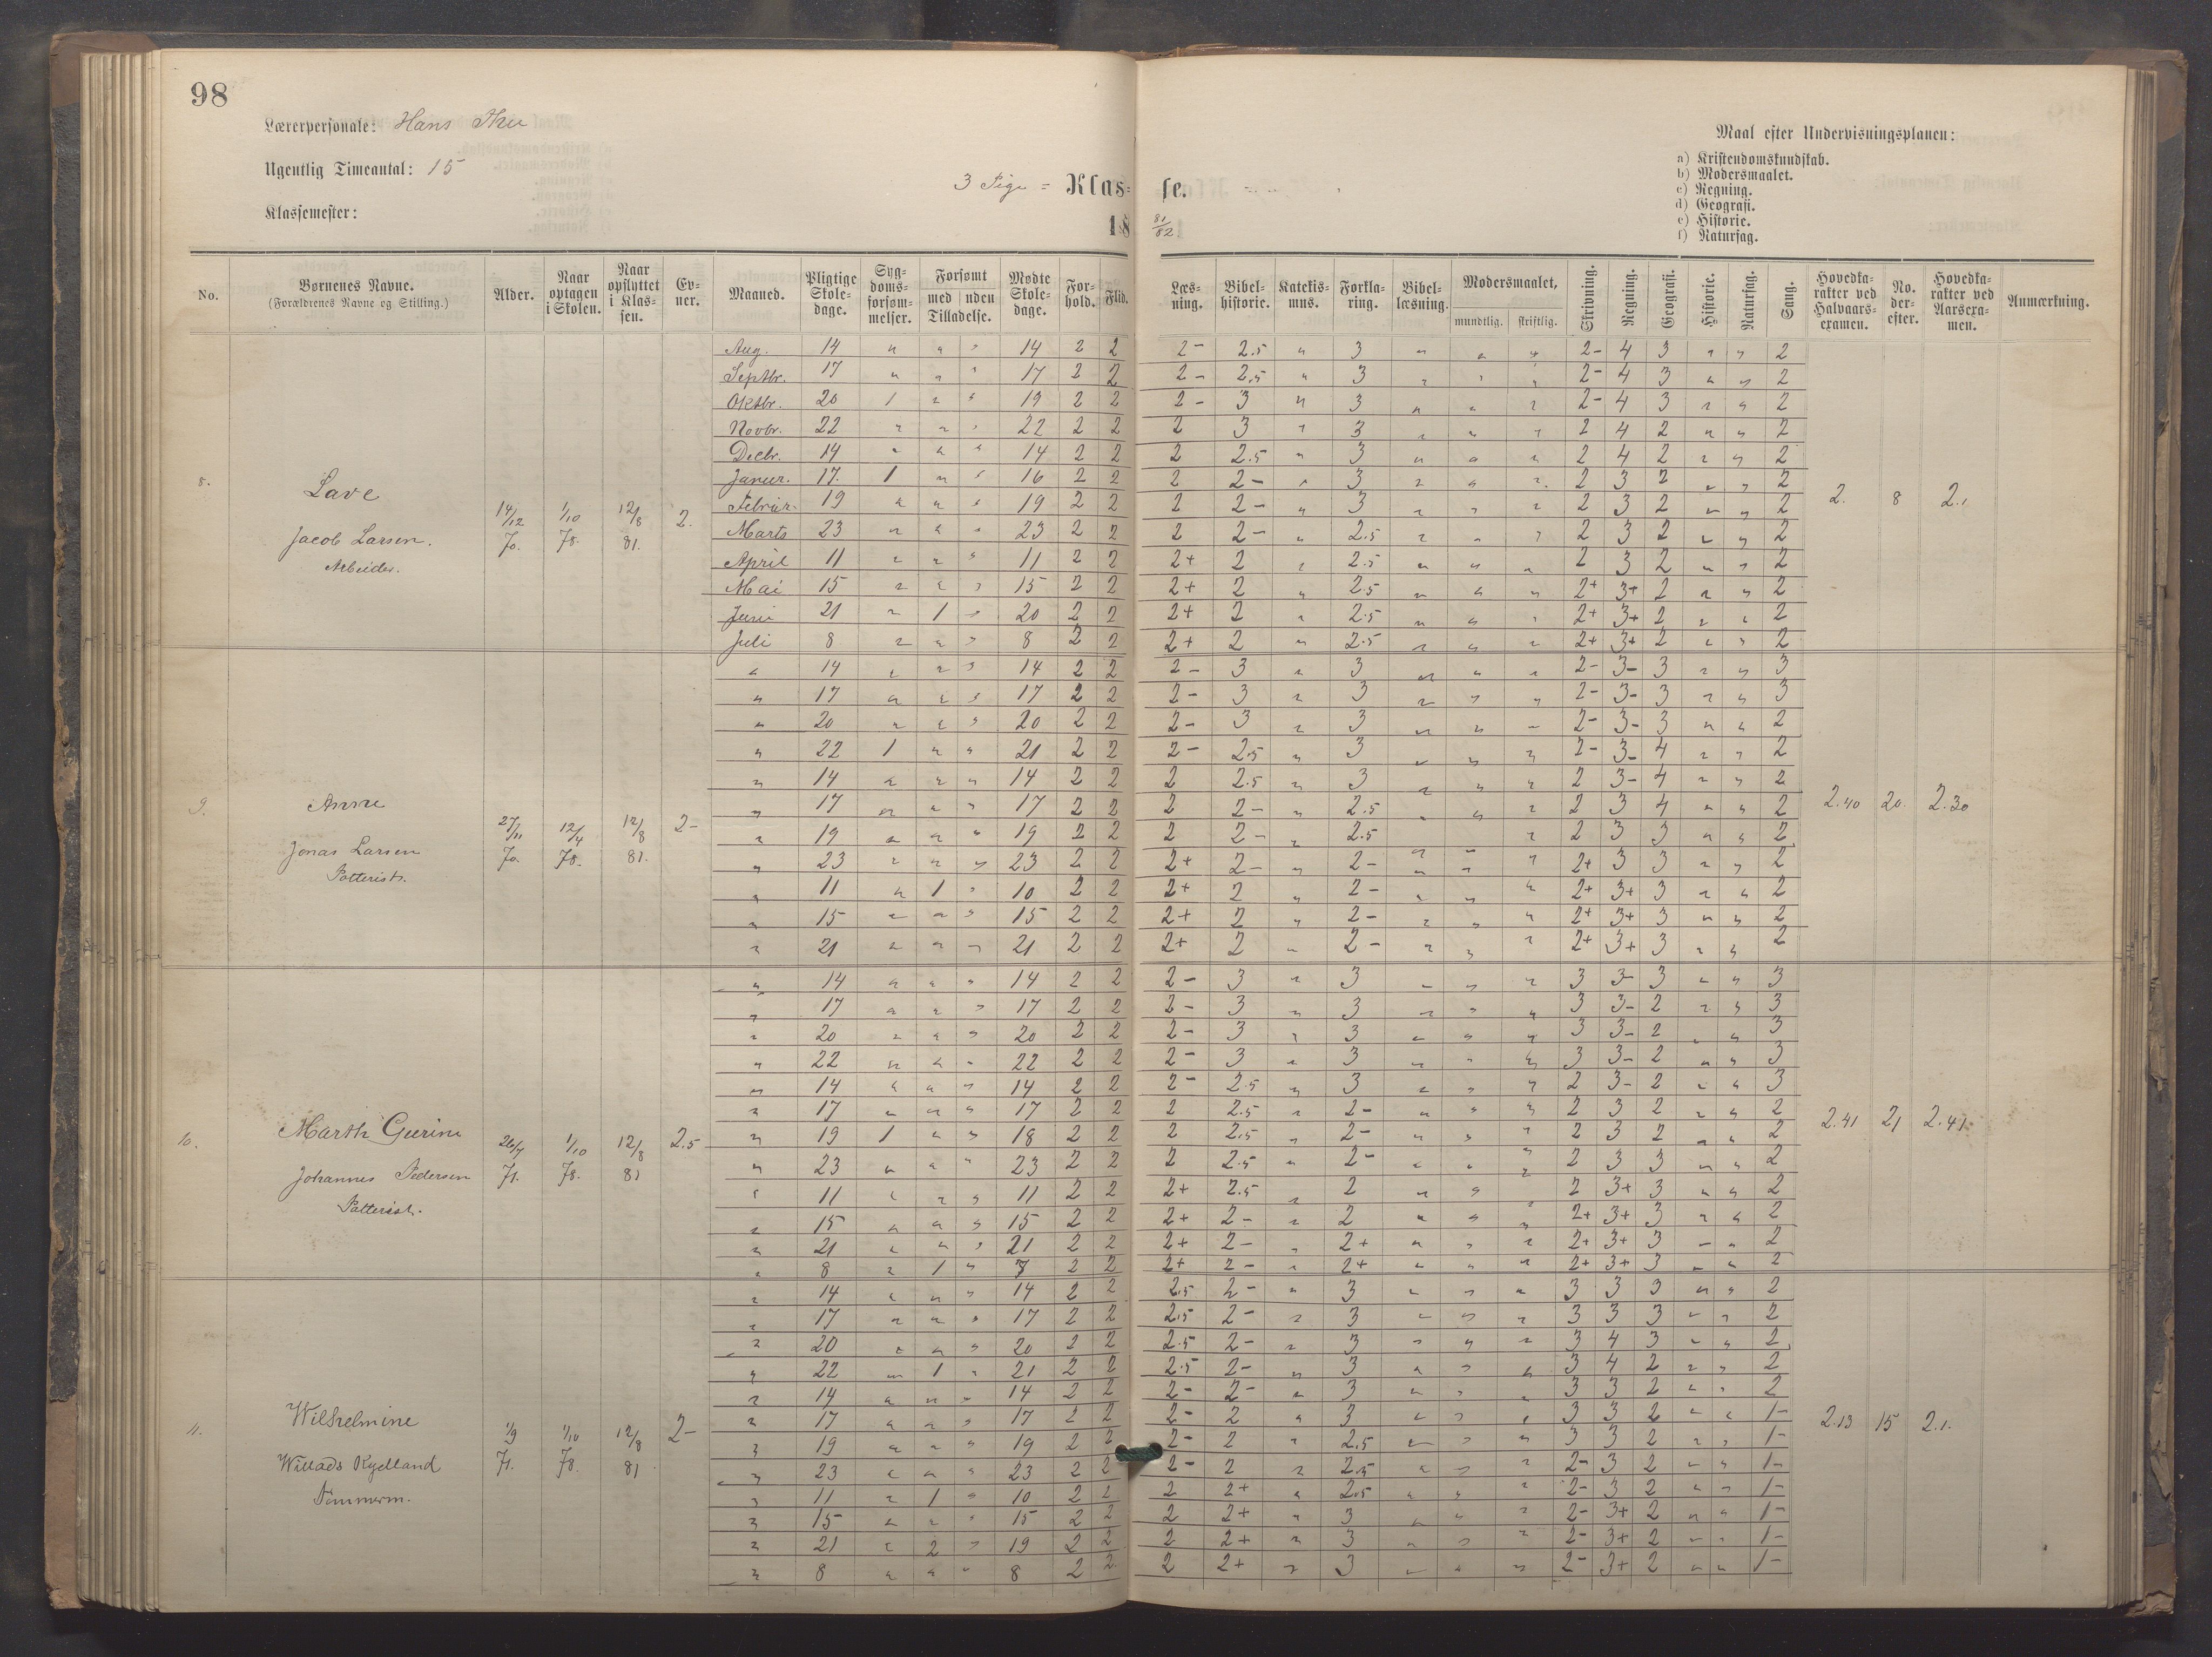 98
Lærerpersonale: Hans
Ugentlig Timeantal: 15
Klassemester:
3 Pige = Klas=se.
18 81/82
Maal efter Undervisningsplanen:
a) Kristendomskundskab.
b) Modersmaalet.
c) Regning.
d) Geografi.
e) Historie.
f) Naturfag.
No.
Børnenes Navne.
(Forældrenes Navne og Stilling.)
Alder.
Naar optagen i Skolen.
Naar opflyttet i Klassen.
Evner.
Maaned.
Pligtige Skoledage.
Sygdomsforsømmelser.
Forsømt med uden Tilladelse.
Mødte Skoledage.
Forhold.
Flid.
Læsning.
Bibelhistorie.
Katekismus.
Forklaring.
Bibellæsning.
Modersmaalet, mundtlig. skriftlig.
Skrivning.
Regning.
Geografi.
Historie.
Naturfag.
Sang.
Hovedkarakter ved Halvaarsexamen.
No. derefter.
Hovedkarakter ved Aarsexamen.
Anmærkning.
8. Lave
Jacob Larsen.
Arbeider.
14/12 70. 1/10 78. 12/8 81. 2.
Aug. 14 14 2 2 2- 2.5 3 2- 4 3 2
Septbr. 17 17 2 2 2- 2.5 3 2- 4 3 2
Oktbr. 20 1 19 2 2 2- 3 3 2- 4 3 2
Novbr. 22 22 2 2 2 3 3 2 4 2 2
Decbr. 14 14 2 2 2 2.5 3 2 4 2 2
Januar. 17. 1 16 2 2 2 2- 3 2 3 2 2
Februar. 19 19 2 2 2 2- 3 2 3 2 2
Marts 23 23 2 2 2 2- 2.5 2 3 2 2
April 11 11 2 2 2+ 2 2.5 2 3 2 2
Mai 15 15 2 2 2+ 2 2.5 2+ 3+ 2 2
Juni 21 1 20 2 2 2+ 2 2.5 2+ 3+ 2 2
Juli 8 8 2 2 2+ 2 2.5 2+ 3+ 2 2
2. 8 2.1
9. Anne
Jonas Larsen
Potterist.
27/11 70. 12/4 78. 12/8 81. 2-
14 14 2 2 2- 3 3 2- 3- 3 3
17 17 2 2 2- 3 3 2- 3- 3 3
20 20 2 2 2- 3 3 2- 3- 3 2
22 1 21 2 2 2- 2.5 3 2- 3- 4 2
14 14 2 2 2 2.5 3 2 3- 4 2
17 17 2 2 2 2- 2.5 2 3 4 2
19 19 2 2 2 2- 2.5 2 3 3 2
23 23 2 2 2+ 2- 2- 2+ 3 3 2
11 1 10 2 2 2+ 2 2- 2+ 3+ 3 2
15 15 2 2 2+ 2 2- 2+ 3+ 3 2
21 21 2 2 2+ 2 2- 2+ 3+ 3 2
2.40 20. 2.30
10. Marth Gurine
Johannes Pedersen
Potterist.
26/7 71. 1/10 78. 12/8 81 2.5
14 14 2 2 2- 3 3 3 3- 3 3
17 17 2 2 2- 3 3 3 3- 2 3
20 20 2 2 2- 3 3 3 3- 2 3
22 22 2 2 2- 3 3 3 3- 2 3
14 14 2 2 2- 2.5 3 2 3- 2 3
17 17 2 2 2 2.5 2- 2 3 2 2
19 1 18 2 2 2 2.5 2- 2 3 2 2
23 23 2 2 2 2.5 2- 2 3 3 2
11 11 2 2 2+ 2.5 2 2 3+ 3 2
15 15 2 2 2+ 2- 2 2+ 3+ 3 2
21 21 2 2 2+ 2- 2+ 2+ 3+ 3 2
8 1 7 2 2 2+ 2- 2+ 2+ 3+ 3 2
2.41 21 2.41
11. Wilhelmine
Willads Kydland
Tømmerm.
1/9 71. 1/10 78. 12/8 81 2-
14 14 2 2 2.5 2- 3 3 3 3 2
17 17 2 2 2.5 2- 3 3 3 3 2
20 20 2 2 2.5 2- 3 3 4 3 2
22 1 21 2 2 2.5 2- 3 3 4 2 2
14 14 2 2 2- 2- 3 3 3 2 2
17 17 2 2 2- 2 3 3 3 2 1-
19 19 2 2 2- 2 2.5 3 3 2 1-
23 23 2 2 2- 2 2.5 2- 3 2 1-
11 1 10 2 2 2 2+ 2.5 2- 3 2 1-
15 15 2 2 2 2+ 3 2- 3+ 2 1-
21 2 19 2 2 2 2+ 3 2- 3+ 2 1-
8 8 2 2 2 2+ 3 2- 3+ 2 1-
2.13 15 2.1.